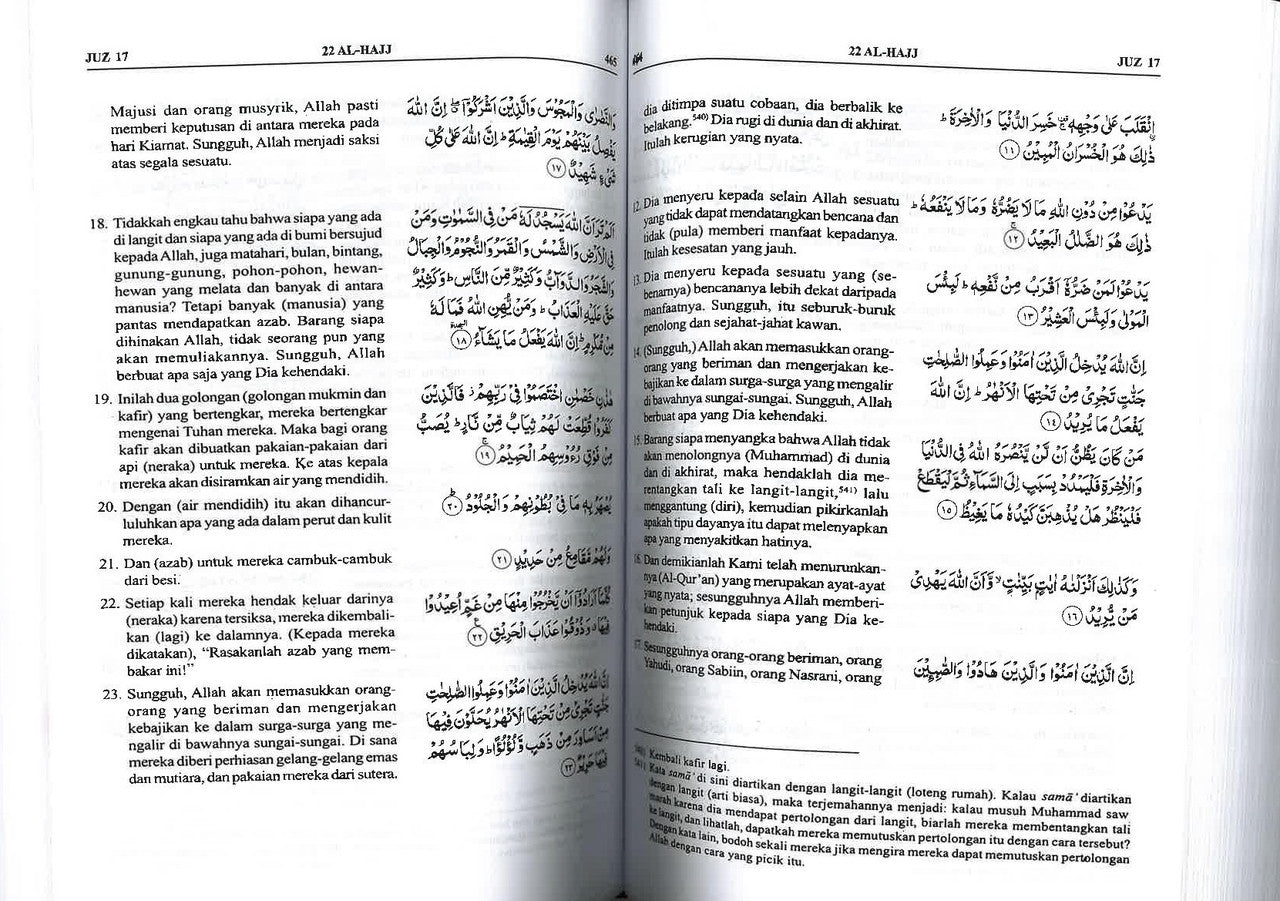 464
22 AL-HAJJ
JUZ 17
dia ditimpa suatu cobaan, dia berbalik ke
belakang.⁵⁴⁰⁾ Dia rugi di dunia dan di akhirat.
Itulah kerugian yang nyata.
12. Dia menyeru kepada selain Allah sesuatu
yang tidak dapat mendatangkan bencana dan
tidak (pula) memberi manfaat kepadanya.
Itulah kesesatan yang jauh.
13. Dia menyeru kepada sesuatu yang (se-
benarnya) bencananya lebih dekat daripada
manfaatnya. Sungguh, itu seburuk-buruk
penolong dan sejahat-jahat kawan.
14. (Sungguh,) Allah akan memasukkan orang-
orang yang beriman dan mengerjakan ke-
bajikan ke dalam surga-surga yang mengalir
di bawahnya sungai-sungai. Sungguh, Allah
berbuat apa yang Dia kehendaki.
15. Barang siapa menyangka bahwa Allah tidak
akan menolongnya (Muhammad) di dunia
dan di akhirat, maka hendaklah dia me-
rentangkan tali ke langit-langit,⁵⁴¹⁾ lalu
menggantung (diri), kemudian pikirkanlah
apakah tipu dayanya itu dapat melenyapkan
apa yang menyakitkan hatinya.
16. Dan demikianlah Kami telah menurunkan-
nya (Al-Qur'an) yang merupakan ayat-ayat
yang nyata; sesungguhnya Allah memberi-
kan petunjuk kepada siapa yang Dia ke-
hendaki.
17. Sesungguhnya orang-orang beriman, orang
Yahudi, orang Sabiin, orang Nasrani, orang
اِنْقَلَبَ عَلٰى وَجْهِهٖۗ خَسِرَ الدُّنْيَا وَالْاٰخِرَةَۗ
ذٰلِكَ هُوَ الْخُسْرَانُ الْمُبِيْنُ ١١
يَدْعُوْا مِنْ دُوْنِ اللّٰهِ مَا لَا يَضُرُّهٗ وَمَا لَا يَنْفَعُهٗۗ
ذٰلِكَ هُوَ الضَّلٰلُ الْبَعِيْدُ ١٢
يَدْعُوْا لَمَنْ ضَرُّهٗٓ اَقْرَبُ مِنْ نَّفْعِهٖۗ لَبِئْسَ
الْمَوْلٰى وَلَبِئْسَ الْعَشِيْرُ ١٣
اِنَّ اللّٰهَ يُدْخِلُ الَّذِيْنَ اٰمَنُوْا وَعَمِلُوا الصّٰلِحٰتِ
جَنّٰتٍ تَجْرِيْ مِنْ تَحْتِهَا الْاَنْهٰرُۗ اِنَّ اللّٰهَ
يَفْعَلُ مَا يُرِيْدُ ١٤
مَنْ كَانَ يَظُنُّ اَنْ لَّنْ يَّنْصُرَهُ اللّٰهُ فِى الدُّنْيَا
وَالْاٰخِرَةِ فَلْيَمْدُدْ بِسَبَبٍ اِلَى السَّمَاۤءِ ثُمَّ لْيَقْطَعْ
فَلْيَنْظُرْ هَلْ يُذْهِبَنَّ كَيْدُهٗ مَا يَغِيْظُ ١٥
وَكَذٰلِكَ اَنْزَلْنٰهُ اٰيٰتٍۢ بَيِّنٰتٍۙ وَّاَنَّ اللّٰهَ يَهْدِيْ
مَنْ يُّرِيْدُ ١٦
اِنَّ الَّذِيْنَ اٰمَنُوْا وَالَّذِيْنَ هَادُوْا وَالصَّابِـِٕيْنَ
540) Kembali kafir lagi.
541) Kata samā' di sini diartikan dengan langit-langit (loteng rumah). Kalau samā' diartikan
dengan langit (arti biasa), maka terjemahannya menjadi: kalau musuh Muhammad saw
marah karena dia mendapat pertolongan dari langit, biarlah mereka membentangkan tali
ke langit, dan lihatlah, dapatkah mereka memutuskan pertolongan itu dengan cara tersebut?
Dengan kata lain, bodoh sekali mereka jika mengira mereka dapat memutuskan pertolongan
Allah dengan cara yang picik itu.
JUZ 17
22 AL-HAJJ
465
Majusi dan orang musyrik, Allah pasti
memberi keputusan di antara mereka pada
hari Kiamat. Sungguh, Allah menjadi saksi
atas segala sesuatu.
18. Tidakkah engkau tahu bahwa siapa yang ada
di langit dan siapa yang ada di bumi bersujud
kepada Allah, juga matahari, bulan, bintang,
gunung-gunung, pohon-pohon, hewan-
hewan yang melata dan banyak di antara
manusia? Tetapi banyak (manusia) yang
pantas mendapatkan azab. Barang siapa
dihinakan Allah, tidak seorang pun yang
akan memuliakannya. Sungguh, Allah
berbuat apa saja yang Dia kehendaki.
19. Inilah dua golongan (golongan mukmin dan
kafir) yang bertengkar, mereka bertengkar
mengenai Tuhan mereka. Maka bagi orang
kafir akan dibuatkan pakaian-pakaian dari
api (neraka) untuk mereka. Ke atas kepala
mereka akan disiramkan air yang mendidih.
20. Dengan (air mendidih) itu akan dihancur-
luluhkan apa yang ada dalam perut dan kulit
mereka.
21. Dan (azab) untuk mereka cambuk-cambuk
dari besi.
22. Setiap kali mereka hendak keluar darinya
(neraka) karena tersiksa, mereka dikembali-
kan (lagi) ke dalamnya. (Kepada mereka
dikatakan), “Rasakanlah azab yang mem-
bakar ini!”
23. Sungguh, Allah akan memasukkan orang-
orang yang beriman dan mengerjakan
kebajikan ke dalam surga-surga yang me-
ngalir di bawahnya sungai-sungai. Di sana
mereka diberi perhiasan gelang-gelang emas
dan mutiara, dan pakaian mereka dari sutera.
وَالنَّصٰرٰى وَالْمَجُوْسَ وَالَّذِيْنَ اَشْرَكُوْٓاۖ اِنَّ اللّٰهَ
يَفْصِلُ بَيْنَهُمْ يَوْمَ الْقِيٰمَةِۗ اِنَّ اللّٰهَ عَلٰى كُلِّ
شَيْءٍ شَهِيْدٌ ١٧
اَلَمْ تَرَ اَنَّ اللّٰهَ يَسْجُدُ لَهٗ مَنْ فِى السَّمٰوٰتِ وَمَنْ
فِى الْاَرْضِ وَالشَّمْسُ وَالْقَمَرُ وَالنُّجُوْمُ وَالْجِبَالُ
وَالشَّجَرُ وَالدَّوَاۤبُّ وَكَثِيْرٌ مِّنَ النَّاسِۗ وَكَثِيْرٌ
حَقَّ عَلَيْهِ الْعَذَابُۗ وَمَنْ يُّهِنِ اللّٰهُ فَمَا لَهٗ
مِنْ مُّكْرِمٍۗ اِنَّ اللّٰهَ يَفْعَلُ مَا يَشَاۤءُ ١٨
هٰذٰنِ خَصْمٰنِ اخْتَصَمُوْا فِيْ رَبِّهِمْۖ فَالَّذِيْنَ
كَفَرُوْا قُطِّعَتْ لَهُمْ ثِيَابٌ مِّنْ نَّارٍۗ يُصَبُّ
مِنْ فَوْقِ رُءُوْسِهِمُ الْحَمِيْمُ ١٩
يُصْهَرُ بِهٖ مَا فِيْ بُطُوْنِهِمْ وَالْجُلُوْدُ ٢٠
وَلَهُمْ مَّقَامِعُ مِنْ حَدِيْدٍ ٢١
كُلَّمَآ اَرَادُوْٓا اَنْ يَّخْرُجُوْا مِنْهَا مِنْ غَمٍّ اُعِيْدُوْا
فِيْهَا وَذُوْقُوْا عَذَابَ الْحَرِيْقِ ٢٢
اِنَّ اللّٰهَ يُدْخِلُ الَّذِيْنَ اٰمَنُوْا وَعَمِلُوا الصّٰلِحٰتِ
جَنّٰتٍ تَجْرِيْ مِنْ تَحْتِهَا الْاَنْهٰرُ يُحَلَّوْنَ فِيْهَا
مِنْ اَسَاوِرَ مِنْ ذَهَبٍ وَّلُؤْلُؤًاۗ وَلِبَاسُهُمْ
فِيْهَا حَرِيْرٌ ٢٣